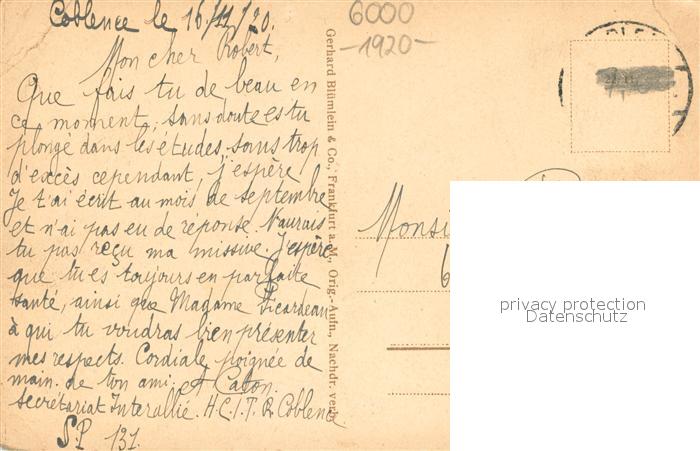 Coblence le 16/11/20.
Mon cher Robert,
Que fais tu de beau en
ce moment, sans doute es tu
plongé dans les études, sans trop
d'excès cependant, j'espère.
Je t'ai écrit au mois de septembre
et n'ai pas eu de réponse. N'aurais
tu pas reçu ma missive. J'espère
que tu es toujours en parfaite
santé, ainsi que Madame Picardeau
à qui tu voudras bien présenter
mes respects. Cordiale poignée de
main. de ton ami. A Caton.
Secrétariat Interallié. H.C.I.T.R. Coblence
S.P. 131.
Gerhard Blümlein & Co., Frankfurt a. M., Orig.-Aufn., Nachdr. verb.
6000
-1920-
privacy protection
Datenschutz